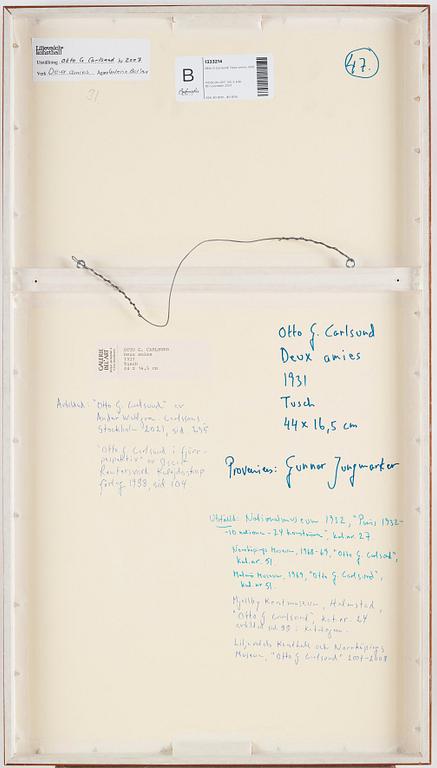 Liljevalchs
konsthall
Utställning Otto G. Carlsund 2007
Verk Deux amies
B
1233214
47.
31
GALERIE
BEL'ART
OTTO G. CARLSUND
Deux amies
1931
Tusch
44 x 16,5 cm
Otto G. Carlsund
Deux amies
1931
Tusch
44 x 16,5 cm
Avbildad: "Otto G Carlsund" av
Stockholm 2021, sid 295
"Otto G. Carlsund i fjärr-
perspektiv" av Oscar
Reutersvärd
förlag 1988, sid 104
Proveniens: Gunnar Jungmarker
Utställd: Nationalmuseum 1932, "Paris 1932-
kat.nr. 27
Norrköpings Museum, 1968-69, "Otto G. Carlsund",
kat.nr. 51.
Malmö Museum, 1969, "Otto G. Carlsund",
kat.nr 51.
Mjellby Konstmuseum, Halmstad,
"Otto G Carlsund", kat.nr. 24
i katalogen.
Liljevalchs Konsthall och Norrköpings
Museum, "Otto G Carlsund" 2007-2008